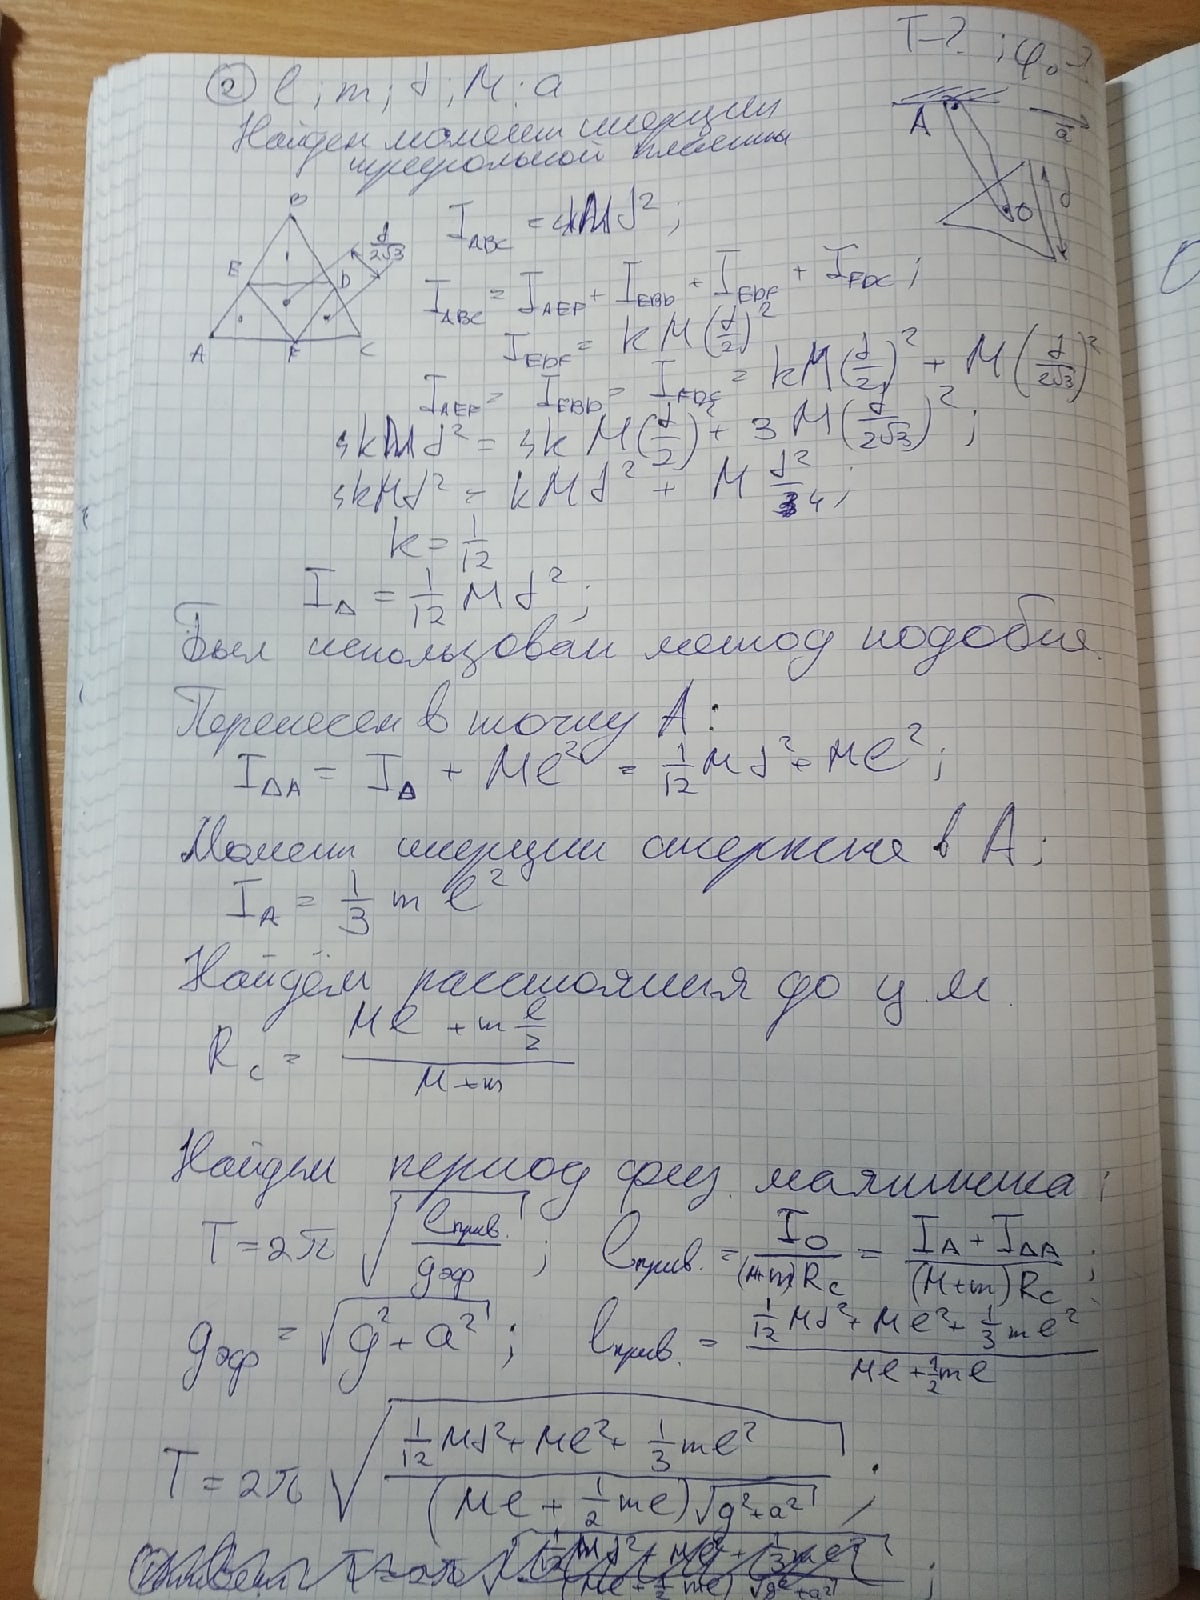 T-? ; φ₀-?
② l; m; d; M; a
Найдем момент инерции
треугольной пластины
A
a
O
d
B
E
D
A
F
C
d/(2√3)
I_ABC = 4kMd²;
I_ABC = I_AEF + I_EBD + I_EDF + I_FDC;
I_EDF = kM(d/2)²
I_AEF = I_EBD = I_FDC = kM(d/2)² + M(d/(2√3))²
4kMd² = 4kM(d/2)² + 3M(d/(2√3))²;
4kMd² = kMd² + M d²/4;
k = 1/12
I_Δ = 1/12 Md²;
Был использован метод подобия.
Перенесем в точку A:
I_ΔA = I_Δ + Ml² = 1/12 Md² + Ml²;
Момент инерции стержня в A:
I_A = 1/3 ml²
Найдём расстояния до ц.м.
R_c = (Ml + m l/2)/(M+m)
Найдем период физ. маятника;
T = 2π √(l_прив./g_эф); l_прив. = I_O/((M+m)R_c) = (I_A + I_ΔA)/((M+m)R_c);
g_эф = √(g² + a²); l_прив. = (1/12 Md² + Ml² + 1/3 ml²)/(Ml + 1/2 ml)
T = 2π √((1/12 Md² + Ml² + 1/3 ml²)/((Ml + 1/2 ml)√(g²+a²)));